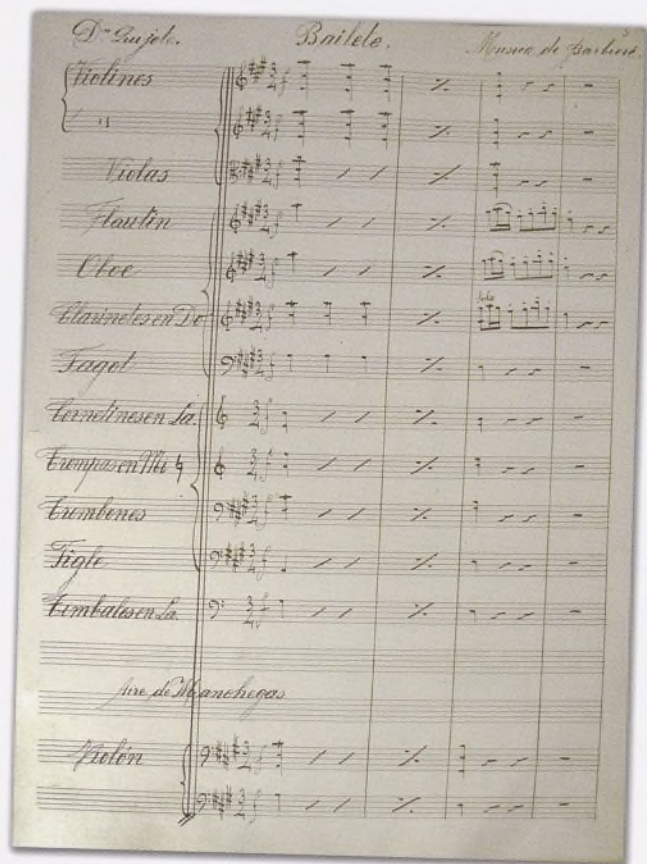 Dn Quijote. Bailete. Musica de Barbieri.
Violines
"
Violas
Flautin
Oboe
Clarinetes en Do
Solo
Fagot
Cornetines en La.
Trompas en Mi ♮
Trombones
Figle
Timbales en La.
Aire de Manchegas
Violón